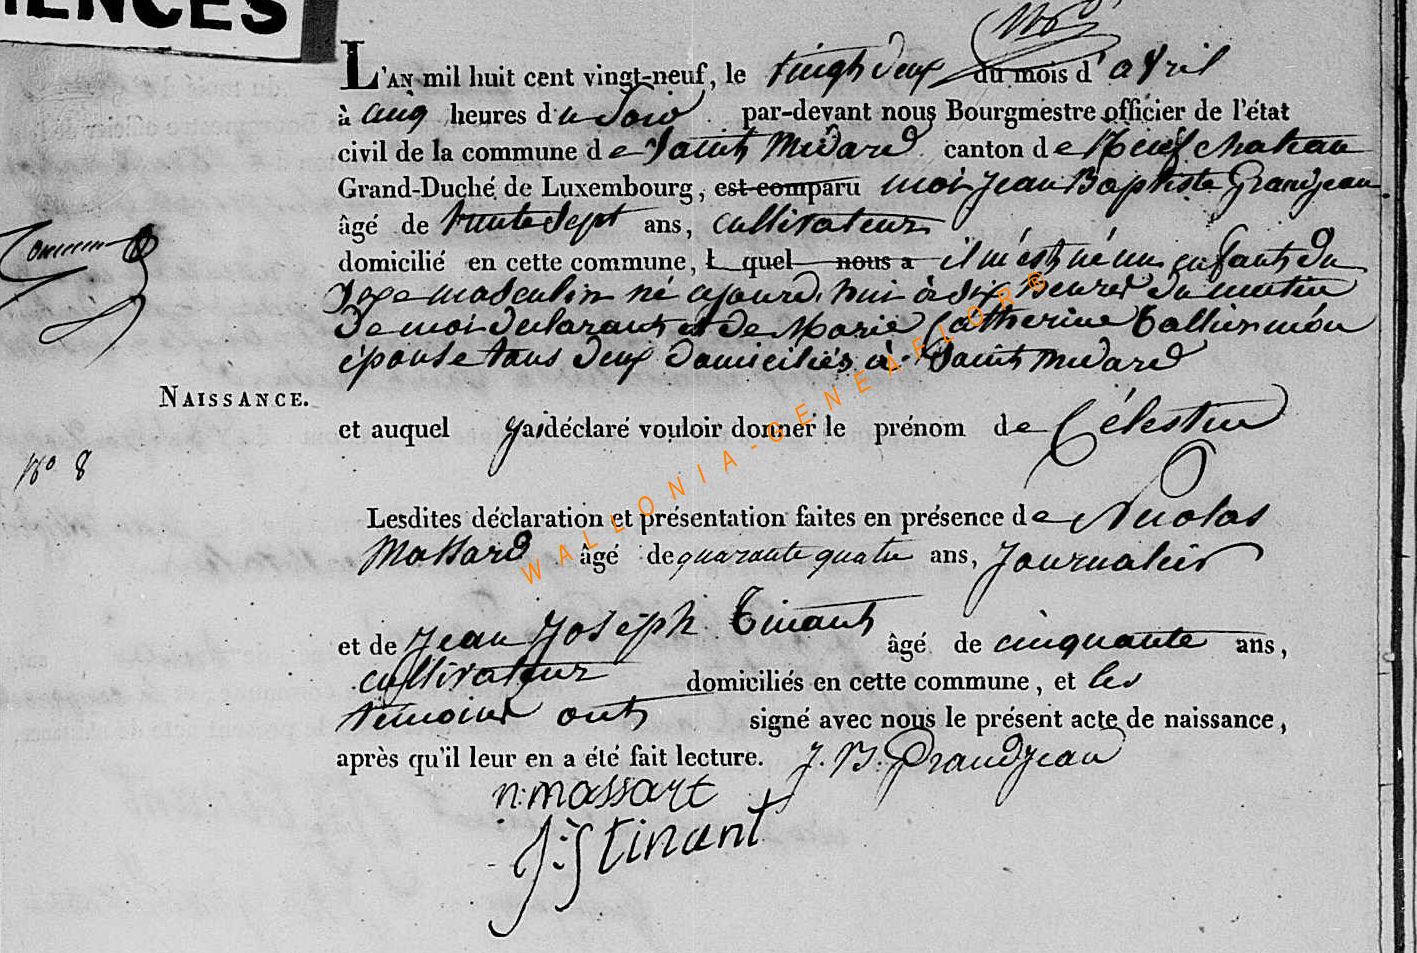 IENCES
L'AN mil huit cent vingt-neuf, le vingt deux du mois d'avril
à cinq heures du soir par-devant nous Bourgmestre officier de l'état
civil de la commune de Saint Médard canton de Neufchateau
Grand-Duché de Luxembourg, est comparu moi Jean Baptiste Grandjean
âgé de trente sept ans, cultivateur
domicilié en cette commune, l quel nous a il m'est né un enfant du
sexe masculin né aujourd'hui à six heures du matin
de moi déclarant et de Marie Catherine mon
épouse tous deux domiciliés à Saint Médard
NAISSANCE.
et auquel j'ai déclaré vouloir donner le prénom de Célestin
No 8
Lesdites déclaration et présentation faites en présence de Nicolas
Massard âgé de quarante quatre ans, Journalier
et de Jean Joseph Tinant âgé de cinquante ans,
cultivateur domiciliés en cette commune, et les
témoins ont signé avec nous le présent acte de naissance,
après qu'il leur en a été fait lecture. J. B. Grandjean
n: massart
J: J tinant
WALLONIA-GENEAFLOR®